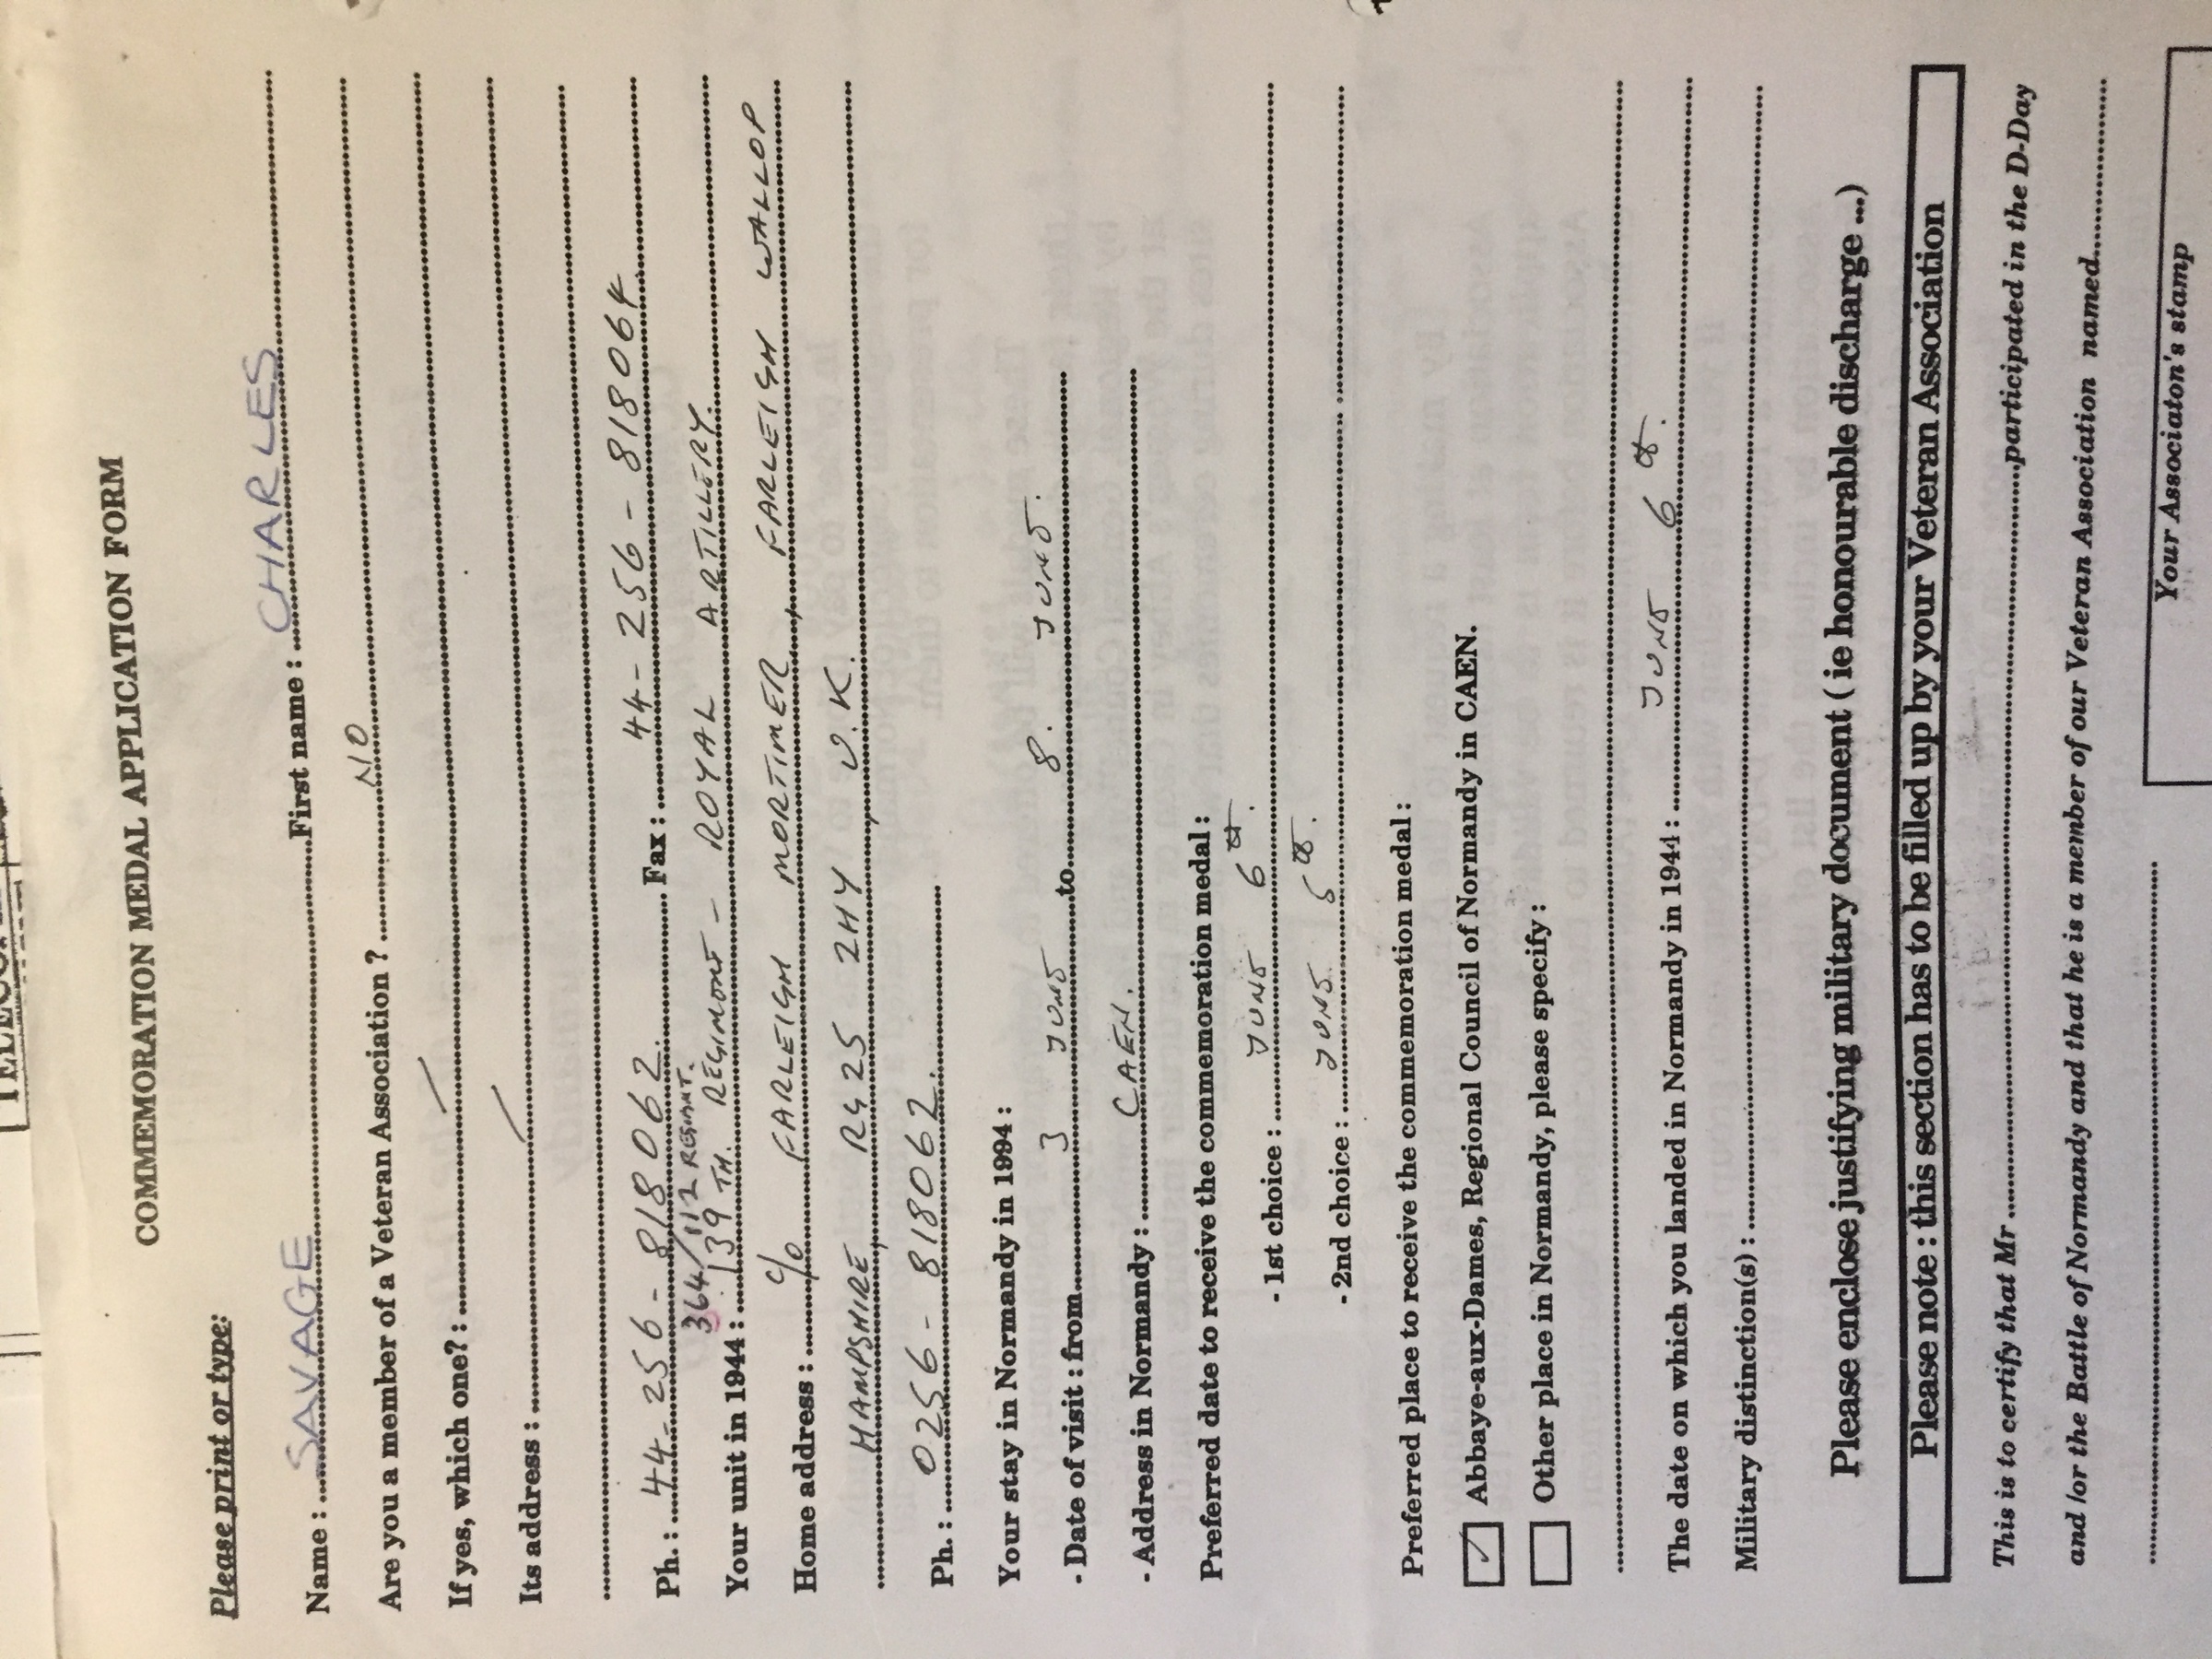 COMMEMORATION MEDAL APPLICATION FORM
Please print or type:
Name : SAVAGE First name : CHARLES
Are you a member of a Veteran Association ? NO
If yes, which one? : /
Its address : /
Ph. : 44-256-818062 Fax : 44-256-818064
364/112 REGIMENT.
Your unit in 1944 : 139 TH. REGIMENT - ROYAL ARTILLERY.
Home address : c/o FARLEIGH MORTIMER, FARLEIGH WALLOP
HAMPSHIRE, RG25 2HY, U.K.
Ph. : 0256-818062.
Your stay in Normandy in 1994 :
- Date of visit : from 3 JUNE to 8. JUNE.
- Address in Normandy : CAEN.
Preferred date to receive the commemoration medal :
- 1st choice : JUNE 6th.
- 2nd choice : JUNE 5th.
Preferred place to receive the commemoration medal :
✓ Abbaye-aux-Dames, Regional Council of Normandy in CAEN.
Other place in Normandy, please specify :
The date on which you landed in Normandy in 1944 : JUNE 6th.
Military distinction(s) :
Please enclose justifying military document ( ie honourable discharge ...)
Please note : this section has to be filled up by your Veteran Association
This is to certify that Mr participated in the D-Day
and /or the Battle of Normandy and that he is a member of our Veteran Association named
Your Associaton's stamp